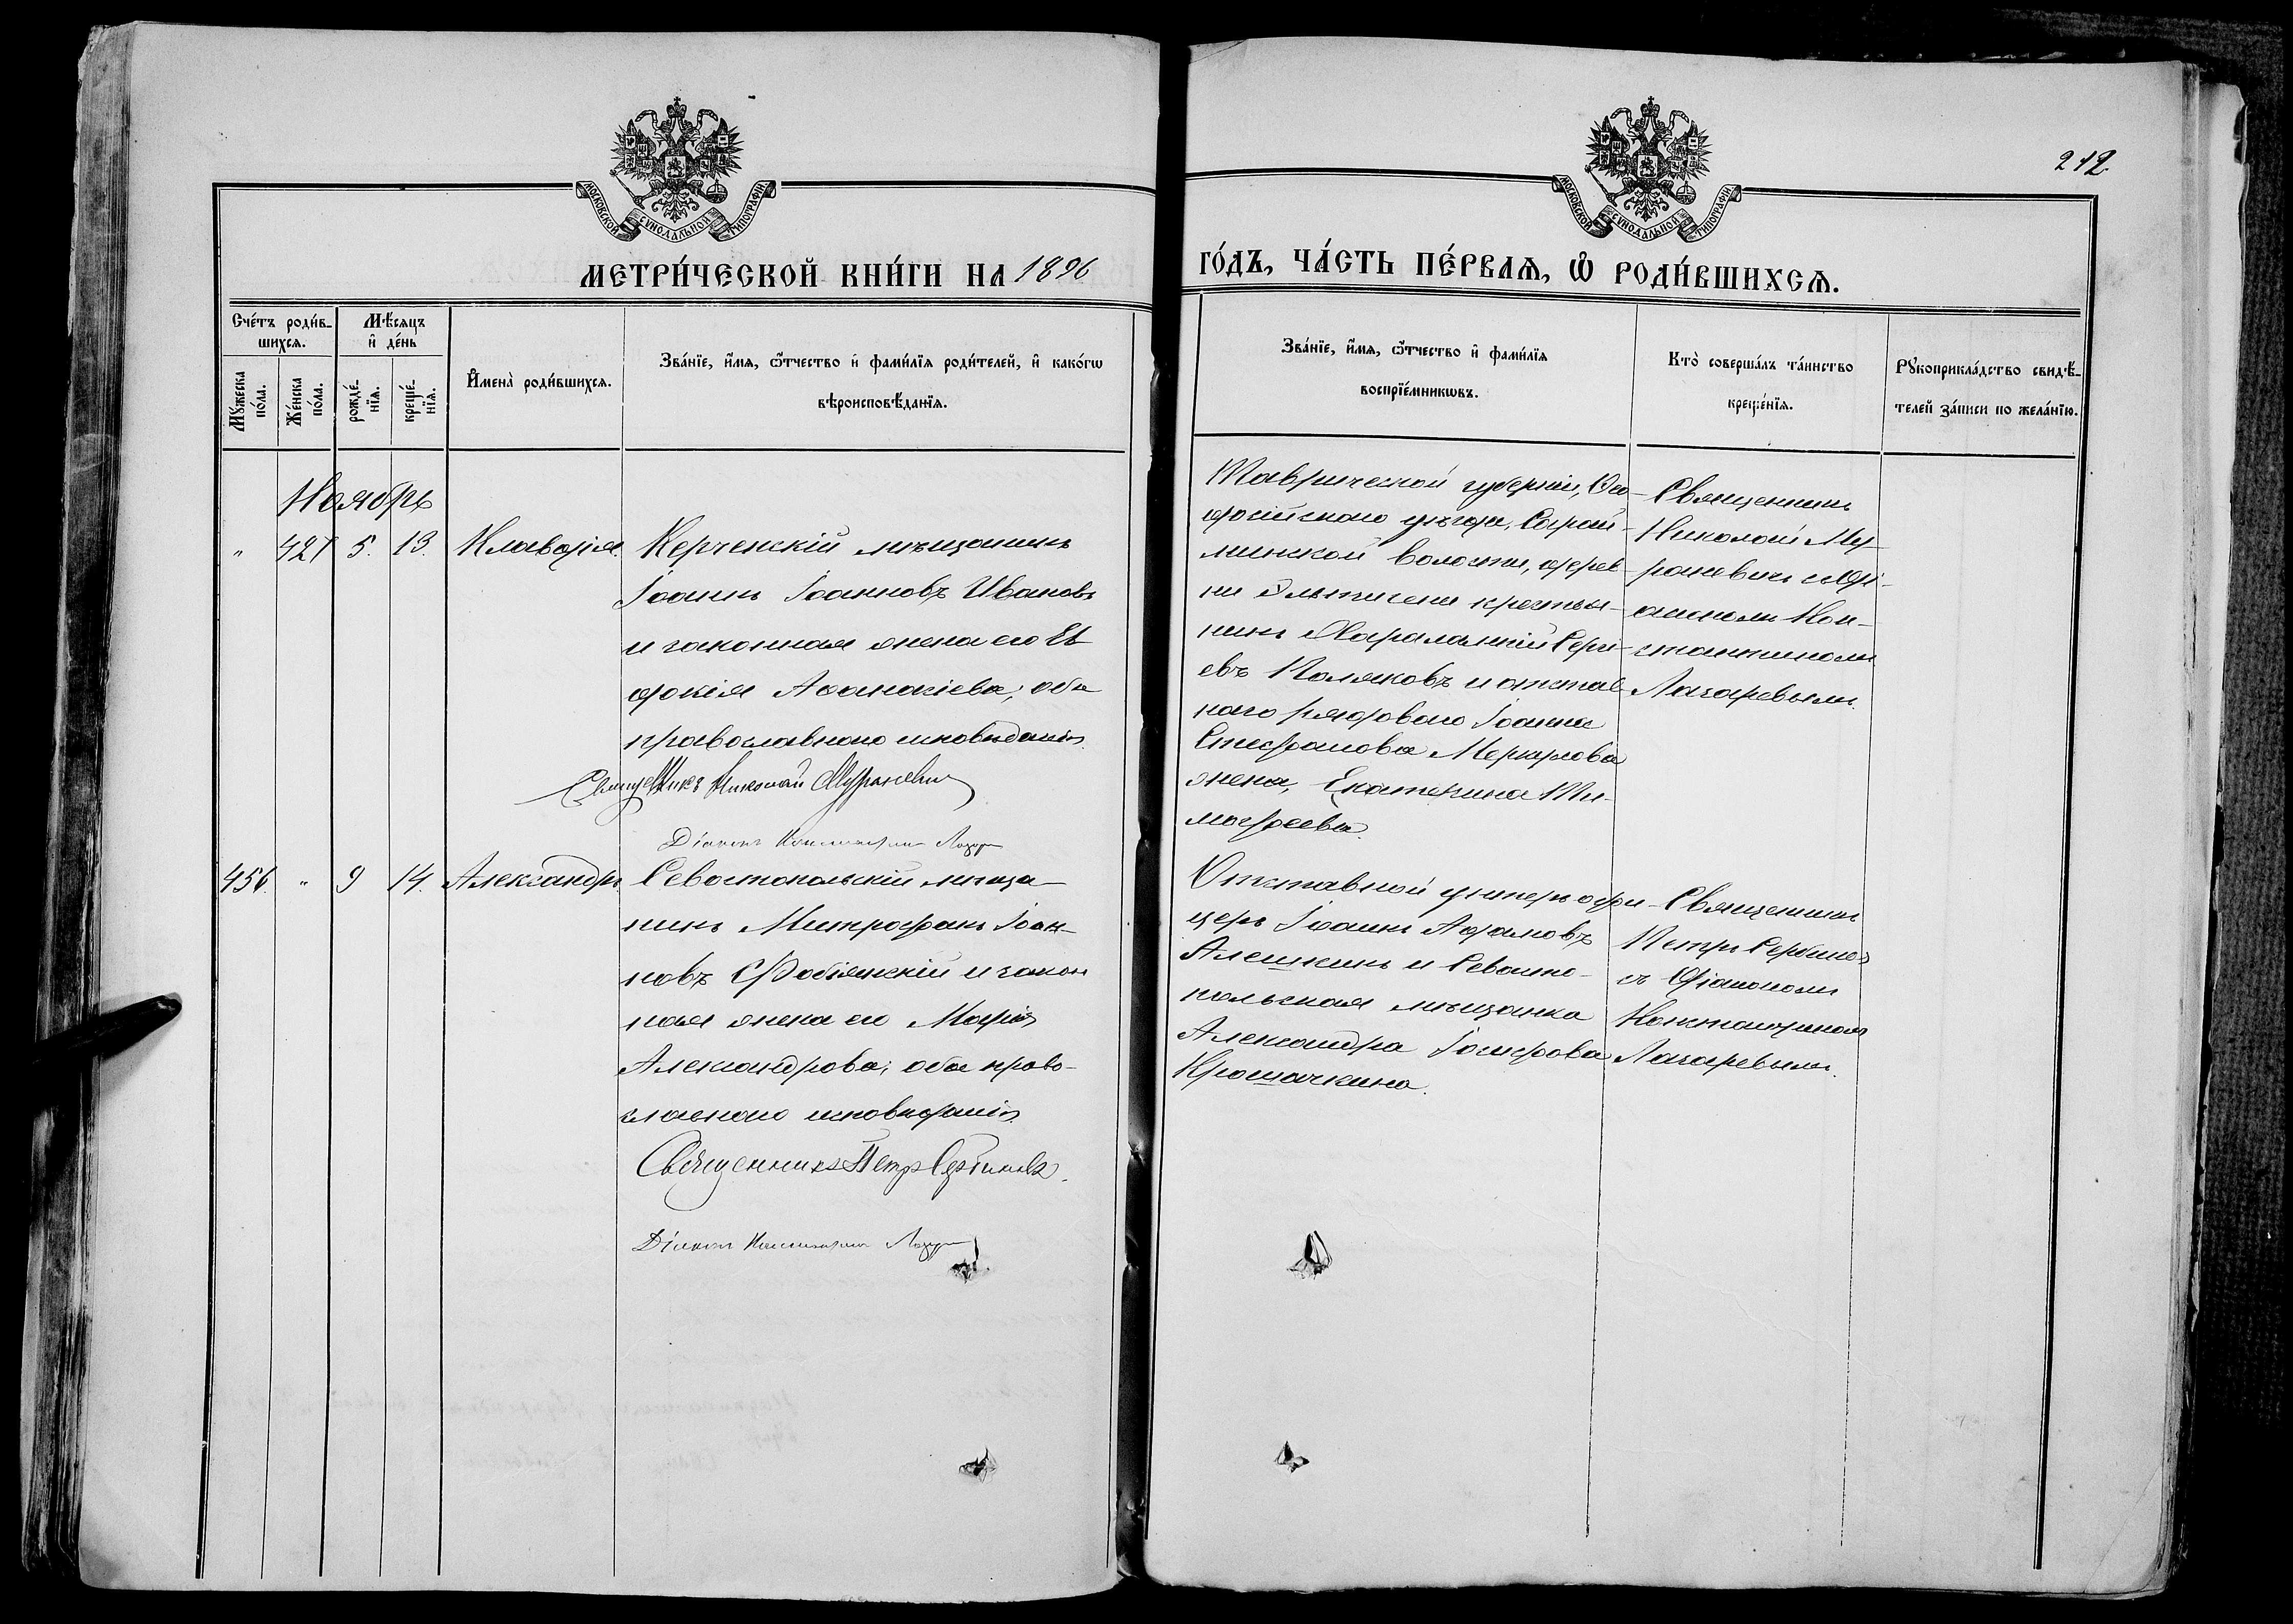 212
МОСКОВСКОЙ СѴНОДАЛЬНОЙ ТИПОГРАФІИ
МОСКОВСКОЙ СѴНОДАЛЬНОЙ ТИПОГРАФІИ
МЕТРИ́ЧЕСКОЙ КНИ́ГИ НА 1896
ГО́ДЪ, ЧА́СТЬ ПЕ́РВАѦ, Ѡ҆ РОДИ́ВШИХСѦ.
Сче́тъ роди́в-
шихсѧ.
Мꙋ́жеска
по́ла.
Же́нска
по́ла.
Мѣ́сѧцъ
и҆ де́нь
рожде́-
нїѧ.
креще́-
нїѧ.
И҆мена̀ роди́вшихсѧ.
Зва́нїе, и҆́мѧ, ѻ҆́тчество и҆ фами́лїѧ роди́телей, и҆ како́гѡ
вѣроисповѣ́данїѧ.
Зва́нїе, и҆́мѧ, ѻ҆́тчество и҆ фами́лїѧ
воспрїе́мникѡвъ.
Кто̀ соверша́лъ та́инство
креще́нїѧ.
Рꙋкоприкла́дство свидѣ́-
телей за́писи по жела́нїю.
Ноябрь
" 421 5. 13. Клавдія.
Керченскій мѣщанинъ
Іоаннъ Іоанновъ Ивановъ
и законная жена его Ев
докія Аѳанасіева; оба
православнаго исповѣданія.
Священникъ Николай Мураневич
Діаконъ Константин Лазарев
Таврической губерніи, Ѳео-
досійскаго уѣзда, Сарай-
минской волости, дерев-
ни крестья-
нинъ Харалампій Серги-
евъ Поляковъ и отстав-
наго рядоваго Іоанна
Стефанова Меркулова
жена, Екатерина Ти-
моѳеева.
Священникъ
Николай Му-
раневичъ съ Ді-
акономъ Кон-
стантиномъ
Лазаревымъ.
456. " 9 14. Александръ
Севастопольскій мѣща-
нинъ Митрофанъ Іоан-
новъ Фабіянскій и закон
ная жена его Марія
Александрова; оба право-
славнаго исповѣданія.
Священникъ Петръ Сербиновъ.
Діаконъ Константин Лазарев
Отставной унтеръ офи-
церъ Іоаннъ Адамовъ
Алешкинъ и Севасто-
польская мѣщанка
Александра Іосифова
Крошачкина.
Священникъ
Петръ Сербиновъ
съ Діакономъ
Константиномъ
Лазаревымъ.